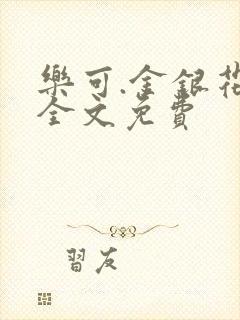 樂可.金銀花
全文免費
習友